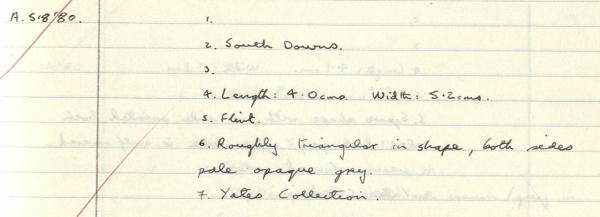 A. S.8'80. 1.
2. South Downs.
3.
4. Length: 4.0cms. Width: 5.2cms.
5. Flint.
6. Roughly triangular in shape, both sides
pale opaque grey.
7. Yates Collection.